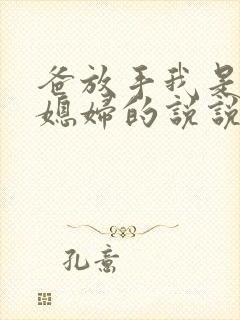 爸放手我是
媳婦的說說
孔意